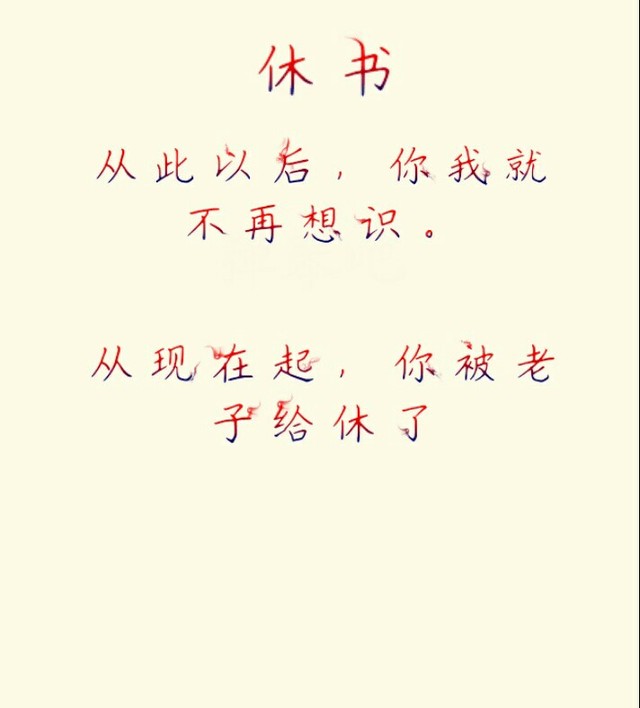 休书
从此以后，你我就
不再想识。
从现在起，你被老
子给休了